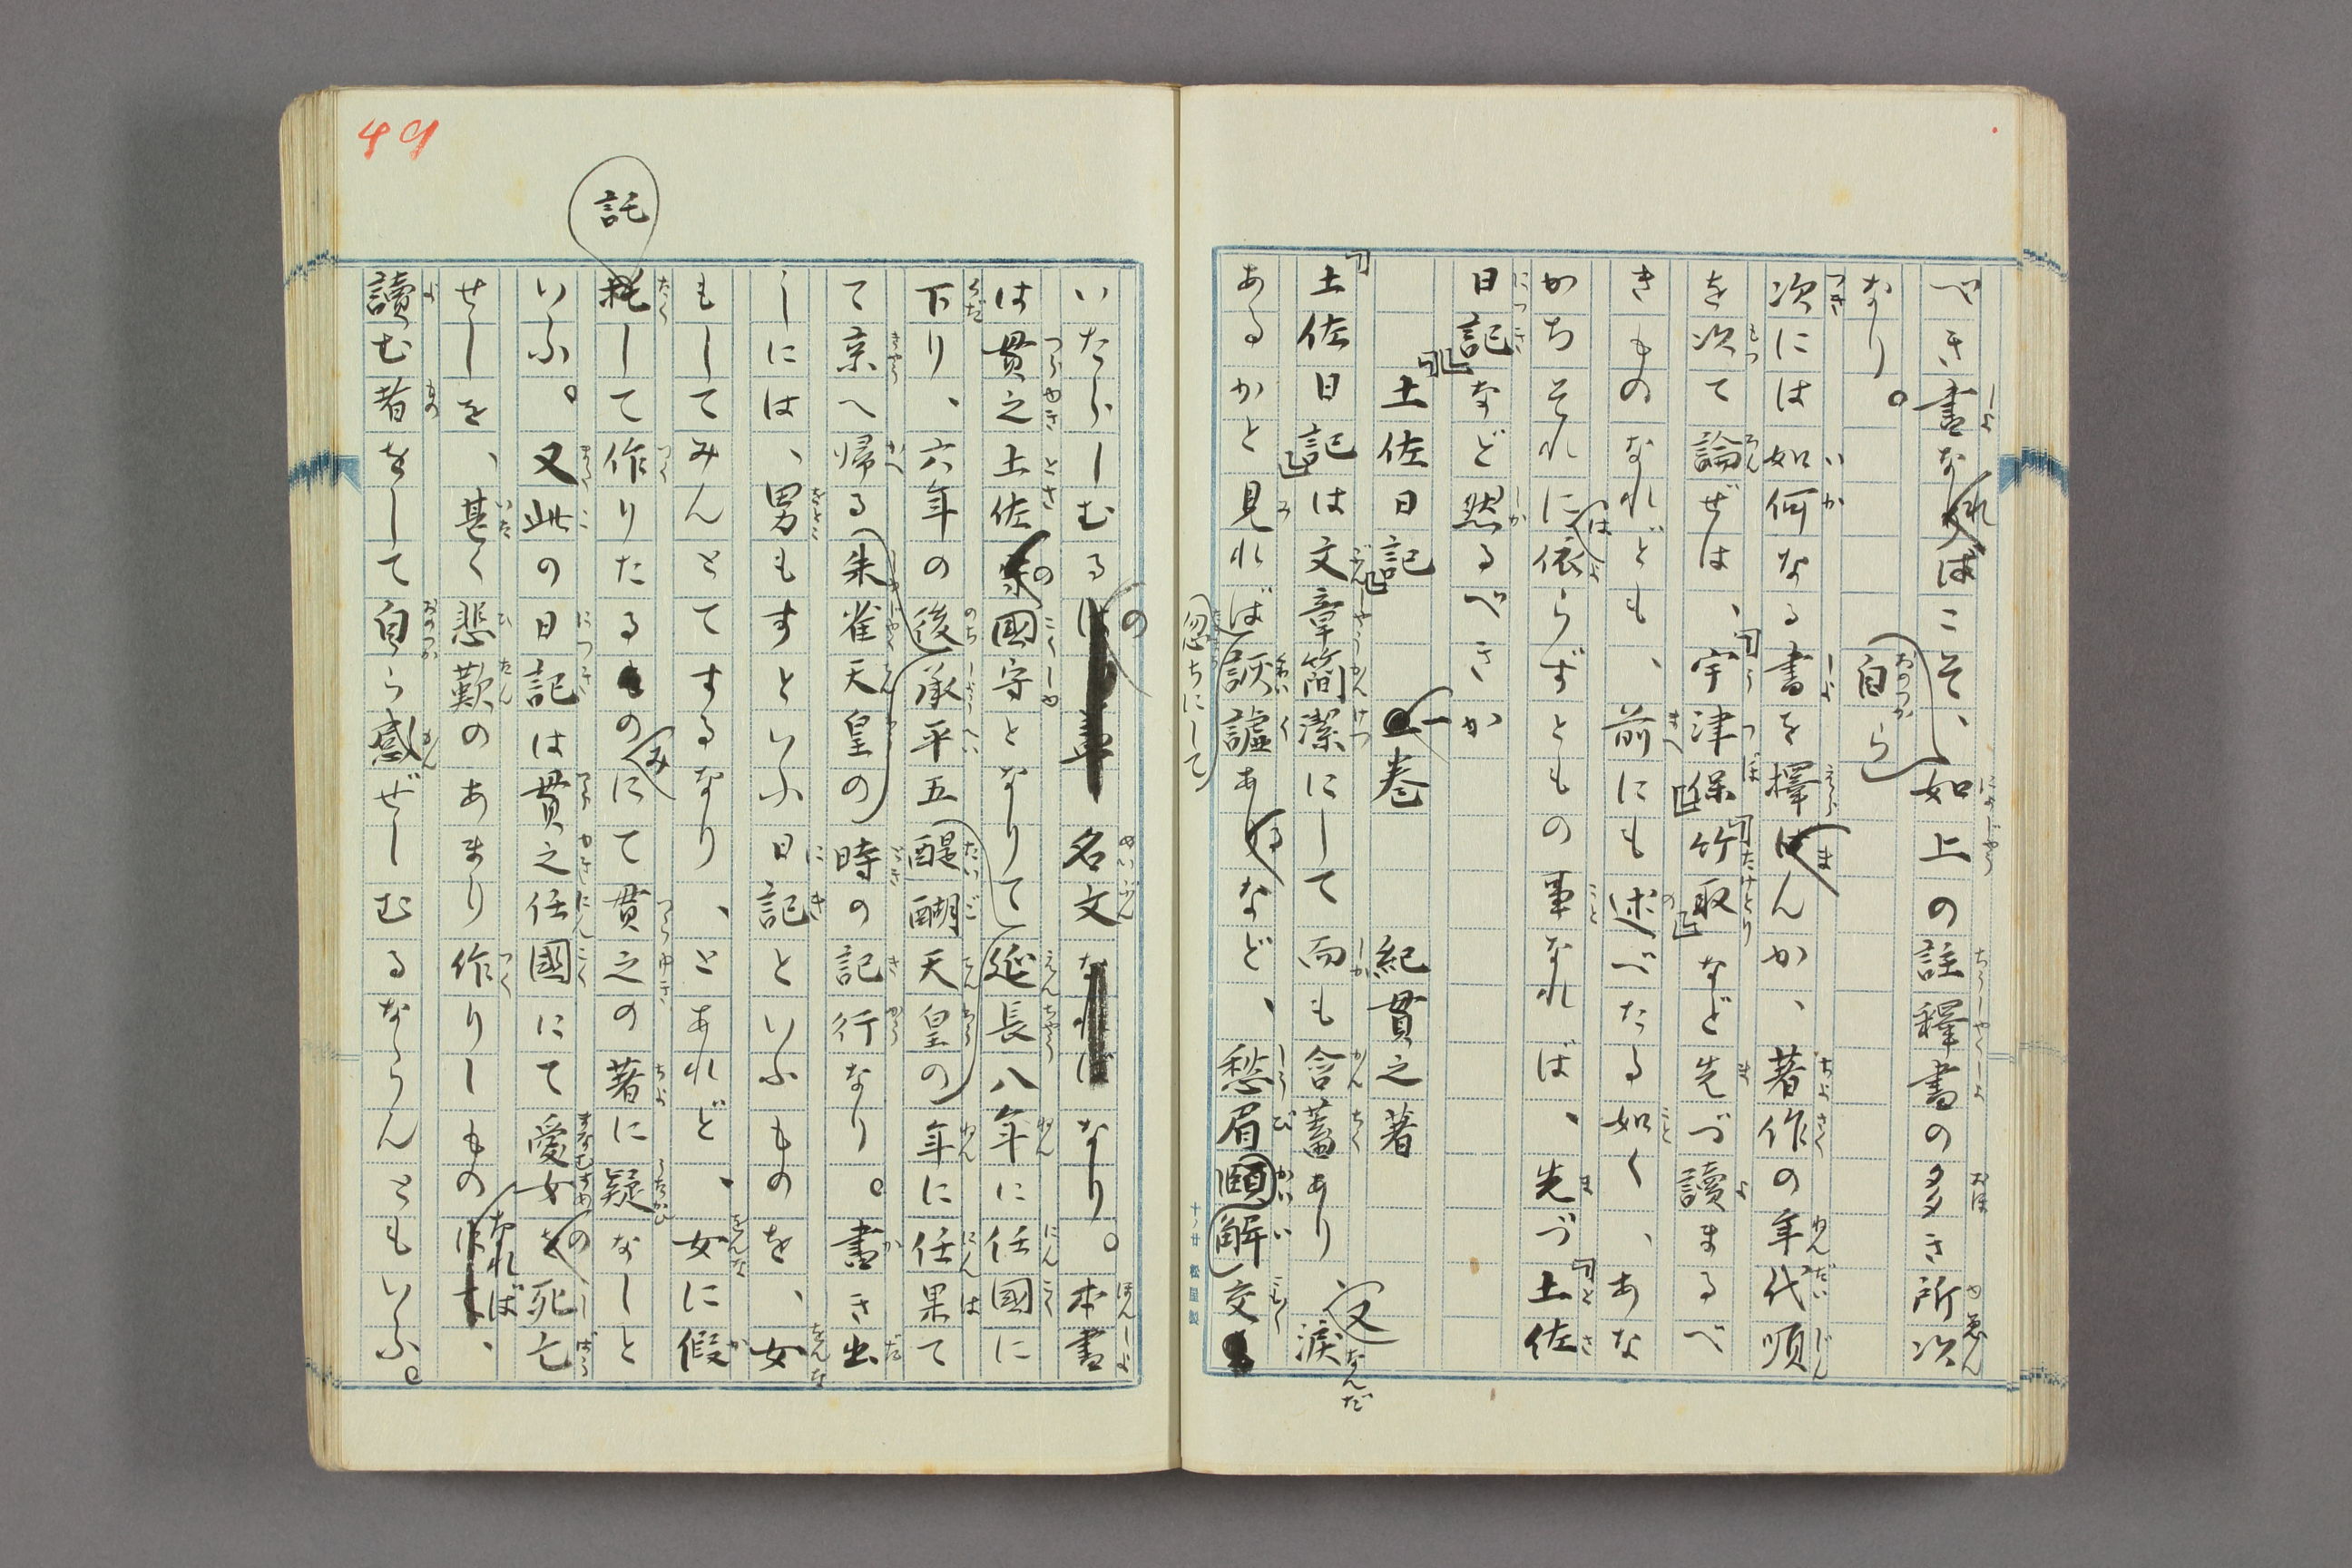 べき書なればこそ、如上の註釋書の多き所次
なり。
自ら
次には如何なる書を擇まんか、著作の年代順
を次て論ぜは、『宇津保』『竹取』など先づ讀まるべ
きものなれども、前にも述べたる如く、あな
かちそれには依らずともの事なれば、先づ『土佐
日記』など然るべきか
『土佐日記』一巻 紀貫之著
『土佐日記』は文章簡潔にして而も含蓄あり 涙
あるかと見れば忽ちにして詼謔あるなど、愁眉頤解交
いたらしむるの名文なり。本書
は貫之土佐の國守となりて延長八年に任國に
下り、六年の後承平五醍醐天皇の年に任果て
て京へ帰る朱雀天皇の時の記行なり。書き出
しには、男もすといふ日記といふものを、女
もしてみんとてするなり、とあれど、女に假
託
托して作りたるのみにて貫之の著に疑なしと
いふ。又此の日記は貫之任國にて愛女の死亡
せしを、甚く悲歎のあまり作りしものなれば、
讀む者をして自ら感ぜしむるならんともいふ。
49
十ノ廿 松屋製